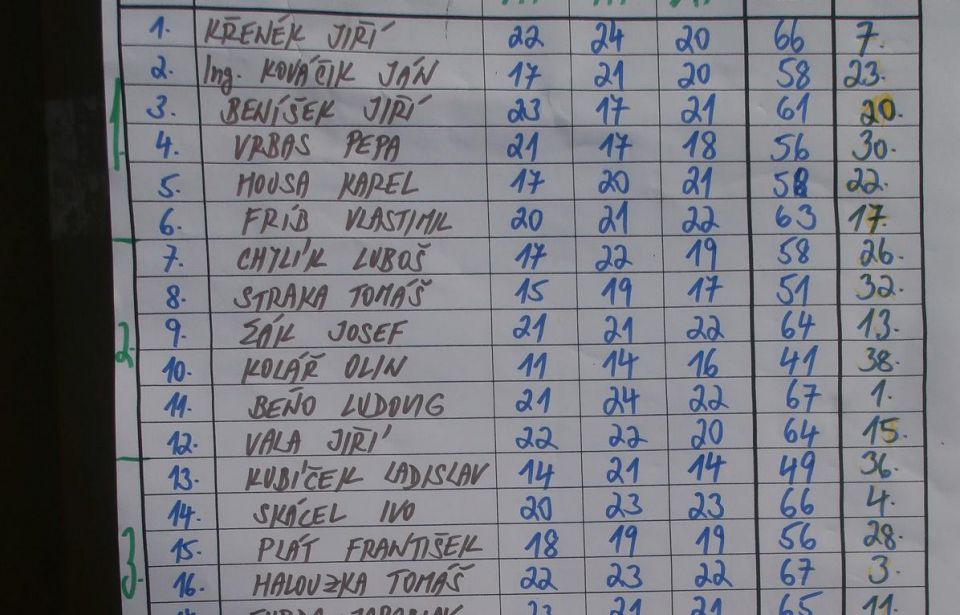 1. KŘENEK JIŘÍ 22 24 20 66 7.
2. Ing. KOVÁČIK JÁN 17 21 20 58 23.
3. BENÍŠEK JIŘÍ 23 17 21 61 20.
4. VRBAS PEPA 21 17 18 56 30.
5. HOUSA KAREL 17 20 21 58 22.
6. FRIB VLASTIMIL 20 21 22 63 17.
7. CHYLÍK LUBOŠ 17 22 19 58 26.
8. STRAKA TOMÁŠ 15 19 17 51 32.
9. ŽÁK JOSEF 21 21 22 64 13.
10. KOLÁŘ OLIN 11 14 16 41 38.
11. BEŇO LUDOVIG 21 24 22 67 1.
12. VALA JIŘÍ 22 22 20 64 15.
13. KUBÍČEK LADISLAV 14 21 14 49 36.
14. SKÁCEL IVO 20 23 23 66 4.
15. PLÁT FRANTIŠEK 18 19 19 56 28.
16. HALOUZKA TOMÁŠ 22 23 22 67 3.
21 21 65 11.
1
2.
3.